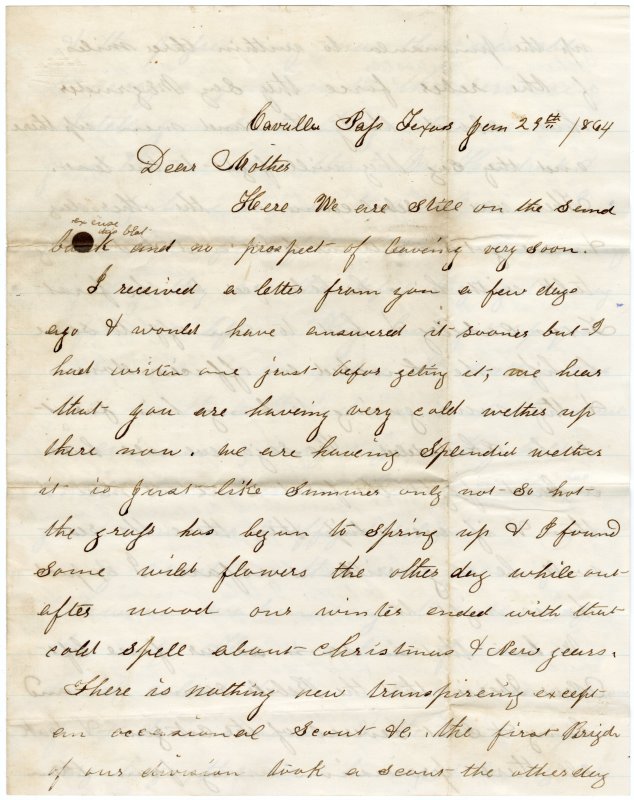 Cavallo Pass Texas Jan 29th 1864
Dear Mother
Here We are still on the sand
excuse
this blot
bank and no prospect of leaving very soon.
I received a letter from you a few days
ago & would have answered it sooner but I
had writen one just befor geting it, we hear
that you are having very cold wether up
there now. we are having Splendid wether
it is just like Summer only not so hot
the grass has begun to spring up & I found
some wild flowers the other day while out
after wood our winter ended with that
cold spell about Christmas & New years.
There is nothing new transpireing except
an occasional Scout &c. the first Brigde
of our division took a scout the other day